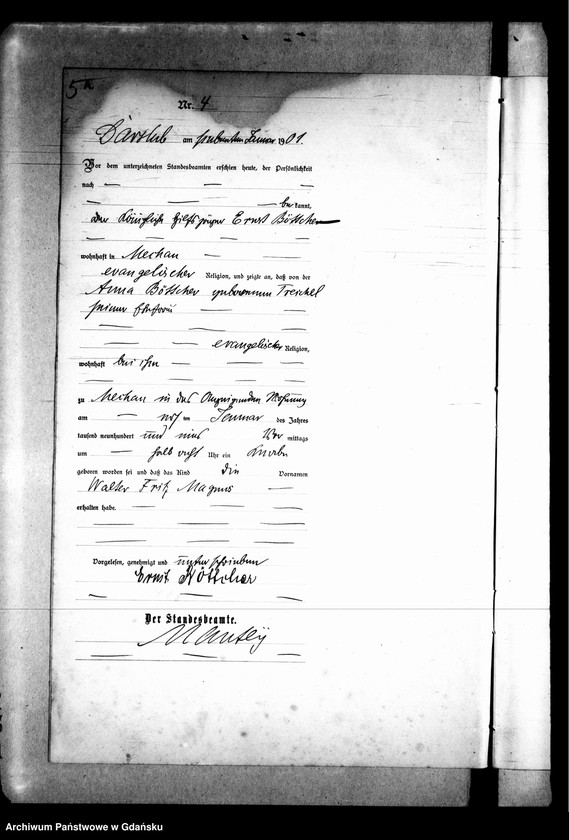 5a
Nr. 4
Darslub am siebenten Januar 1901.
Vor dem unterzeichneten Standesbeamten erschien heute, der Persönlichkeit
nach
be kannt,
der Königliche Hilfsjäger Ernst Böttcher
wohnhaft in Mechau
evangelischer Religion, und zeigte an, daß von der
Anna Böttcher geborenen Treichel
seiner Ehefrau
evangelischer Religion,
wohnhaft bei ihm
zu Mechau in des Anzeigenden Wohnung
am im Januar des Jahres
tausend neunhundert und eins Vor mittags
um halb acht Uhr ein Knabe
geboren worden sei und daß das Kind die Vornamen
Walter Fritz Magnus
erhalten habe.
Vorgelesen, genehmigt und unterschrieben
Ernst Böttcher
Der Standesbeamte.
Archiwum Państwowe w Gdańsku